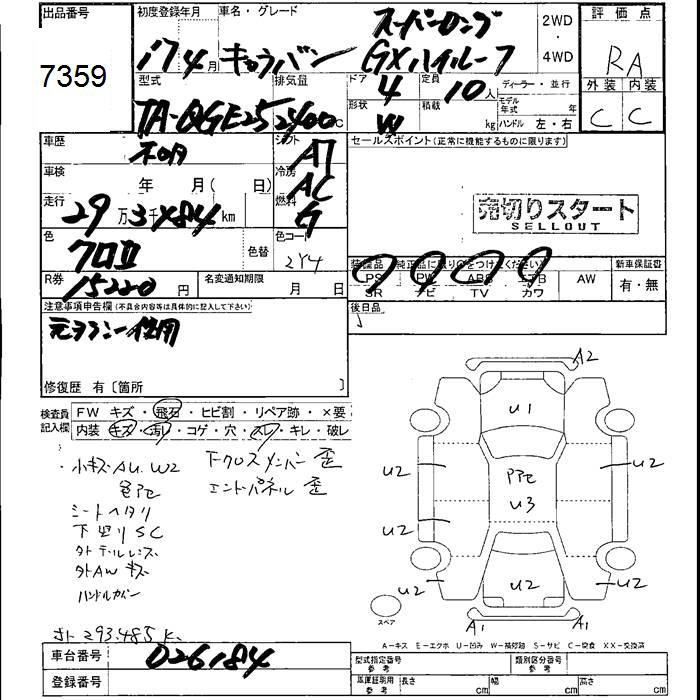 出品番号
7359
初度登録年月
17 4月
車名・グレード
スーパーロング
キャラバン GXハイルーフ
2WD
・
4WD
評価点
RA
外装 内装
C C
型式
TA-QGE25
排気量
2400cc
ドア
4
形状
W
定員
10人
積載
kg
ディーラー・並行
モデル年式 年
ハンドル 左・右
車歴
不明
シフト
AT
車検
年 月(日)
冷房
AC
走行
29万3千484km
燃料
G
色
クロII
色替
色コード
2Y4
R券
15220円
名変通知期限
月 日
セールスポイント(正常に機能するものに限ります)
売切りスタート
SELLOUT
装備品(純正品に限り○をつけてください)
PS PW ABS エアB AW
SR ナビ TV カワ
新車保証書
有・無
後日品
注意事項申告欄(不具合内容等は具体的に記入して下さい)
元タクシー使用
修復歴 有〔箇所 〕
検査員
記入欄
FW キズ・飛石・ヒビ割・リペア跡・×要
内装 キズ・汚れ・コゲ・穴・スレ・キレ・破レ
・小キズ AU.W2
色PE
シートヘタリ
下廻りSC
外テールレンズ
外AWキズ
ハンドルカバー
下クロスメンバー 歪
エンドパネル 歪
メーター293.485K
A2
U1
U2
PPE
U3
U2
U2
U2
U2
U2
U2
A1
A1
スペア
A-キズ E-エクボ U-凹み W-補修跡 S-サビ C-腐食 XX-交換済
車台番号
026184
登録番号
型式指定番号
参考
類別区分番号
参考
車庫証明用
参考
長さ cm
幅 cm
高さ cm